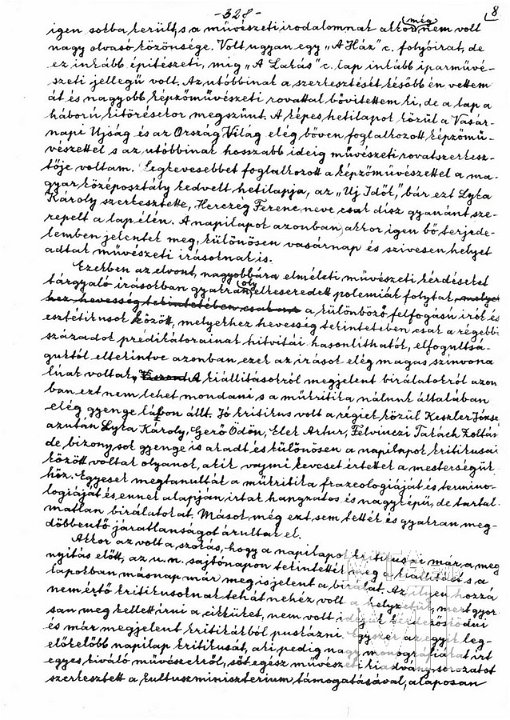 -328-
8
igen sokba került, s a művészeti irodalomnak akkor még nem volt
nagy olvasó közönsége. Volt ugyan egy „A Ház" c. folyóirat, de
ez inkább épitészeti, mig „A Lakás" c. lap inkább iparművé-
szeti jellegű volt. Az utóbbinak a szerkesztését később én vettem
át és nagyobb képzőművészeti rovattal bővitettem ki, de a lap a
háború kitörésekor megszünt. A képes hetilapok közül a Vasár-
napi Ujság és az Ország Világ elég bőven foglalkozott képzőmű-
vészettel s az utóbbinak hosszabb ideig művészeti rovatszerkesz-
tője voltam. Legkevesebbet foglalkozott a képzőművészettel a ma-
gyar középosztály kedvelt hetilapja, az „Uj Idők", bár ezt Lyka
Károly szerkesztette, Herczég Ferenc neve csak disz gyanánt sze-
repelt a lap élén. A napilapok azonban, akkor igen bő terjede-
lemben jelentek meg, különösen vasárnap és szivesen helyet
adtak művészeti irásoknak is.
Ezekben az elvont, nagyobbára elméleti művészeti kérdéseket
tárgyaló irásokban gyakran oly elkeseredett polemiák folytak,
a különböző felfogású irók és
esztétikusok között, melyekhez hevesség tekintetében csak a régebbi
századok prédikátorainak hitvitái hasonlithatók, elfogultsá-
guktól eltekintve azonban ezek az irások elég magas szinvona-
lúak voltak. A kiállitásokról megjelent birálatokról azon-
ban ezt nem lehet mondani s a műkritika nálunk általában
elég gyenge lábon állt. Jó kritikus volt a régiek közül Keszler József
azután Lyka Károly, Gerő Ödön, Elek Artur, Felvinczi Takách Zoltán
de bizony sok gyenge is akadt és különösen a napilapok kritikusai
között voltak olyanok, akik vajmi keveset értettek a mesterségük-
höz. Egyesek megtanulták a műkritika frazeologiáját és termino-
logiáját és ennek alapján irtak hangzatos és nagyképű, de tartal-
matlan birálatokat. Mások még ezt sem tették és gyakran meg-
döbbentő járatlanságot árultak el.
Akkor az volt a szokás, hogy a napilapok kritikusai már a meg-
nyitás előtt, az u.n. sajtónapon tekintették meg a kiállitást s a
lapokban másnap már meg is jelent a birálat. Az ilyen hozzá
nem értő kritikusoknak tehát nehéz volt a helyzetük, mert gyor-
san meg kellett irni a cikküket, nem volt idejük
és már megjelent kritikákból puskázni. Egyszer az egyik leg-
előkelőbb napilap kritikusát, aki pedig nagy monográfiákat irt
egyes kiváló művészekről, sőt egész művészeti kiadvány sorozatot
szerkesztett a kultuszminisztérium támogatásával, alaposan